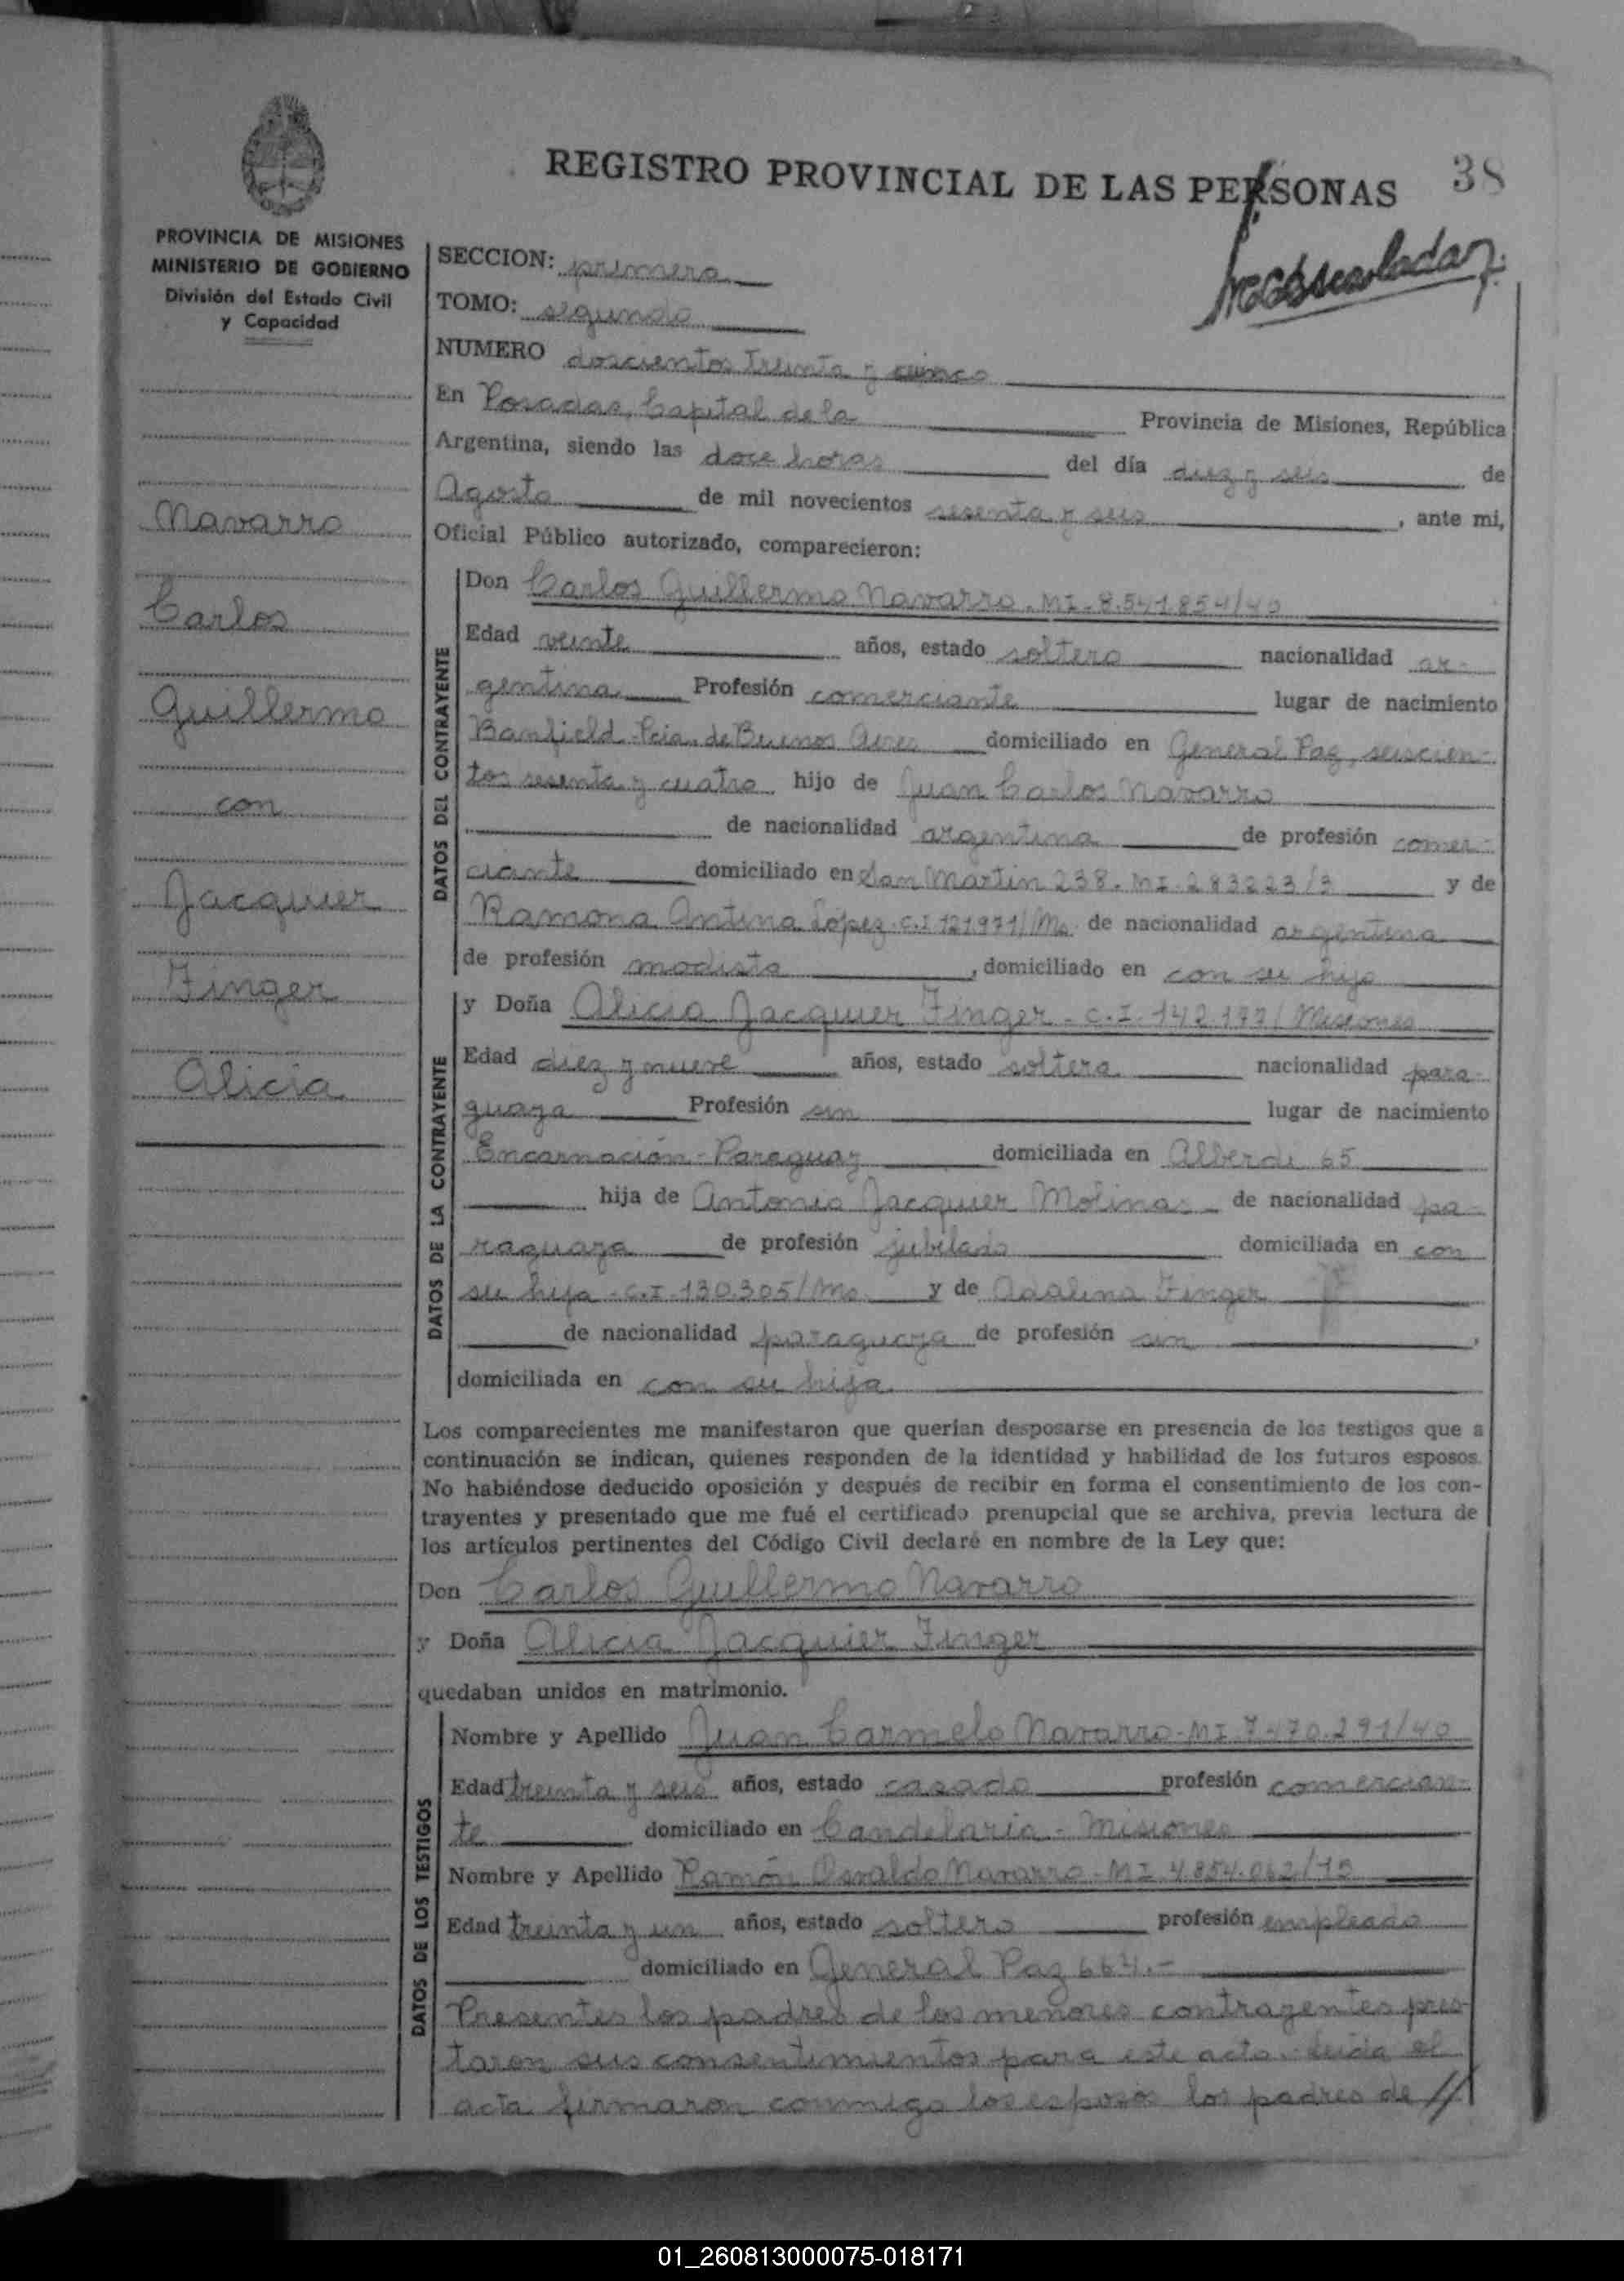 REGISTRO PROVINCIAL DE LAS PERSONAS
38
PROVINCIA DE MISIONES
MINISTERIO DE GOBIERNO
División del Estado Civil
y Capacidad
Navarro
Carlos
Guillermo
con
Jacquier
Finger
Alicia
SECCION: primera
TOMO: segundo
NUMERO doscientos treinta y cinco
En Posadas, Capital de la Provincia de Misiones, República
Argentina, siendo las doce horas del día diez y seis de
Agosto de mil novecientos sesenta y seis, ante mi,
Oficial Público autorizado, comparecieron:
DATOS DEL CONTRAYENTE
Don Carlos Guillermo Navarro. MI. 8.541.854/40
Edad veinte años, estado soltero nacionalidad ar-
gentina Profesión comerciante lugar de nacimiento
Banfield-Pcia. de Buenos Aires domiciliado en General Paz, seiscien-
tos sesenta y cuatro hijo de Juan Carlos Navarro
de nacionalidad argentina de profesión comer-
ciante domiciliado en San Martin 238. MI. 283223/3 y de
Ramona Antina López. C.I 121971/Ms. de nacionalidad argentina
de profesión modista, domiciliado en con su hijo
DATOS DE LA CONTRAYENTE
y Doña Alicia Jacquier Finger - C.I. 142.177/ Misiones
Edad diez y nueve años, estado soltera nacionalidad para-
guaya Profesión sin lugar de nacimiento
Encarnación - Paraguay domiciliada en Alberdi 65
hija de Antonio Jacquier Molinas de nacionalidad pa-
raguaya de profesión jubilado domiciliada en con
su hija - C.I. 130.305/Ms. y de Adalina Finger
de nacionalidad paraguaya de profesión sin,
domiciliada en con su hija
Los comparecientes me manifestaron que querían desposarse en presencia de los testigos que a
continuación se indican, quienes responden de la identidad y habilidad de los futuros esposos.
No habiéndose deducido oposición y después de recibir en forma el consentimiento de los con-
trayentes y presentado que me fué el certificado prenupcial que se archiva, previa lectura de
los artículos pertinentes del Código Civil declaré en nombre de la Ley que:
Don Carlos Guillermo Navarro
y Doña Alicia Jacquier Finger
quedaban unidos en matrimonio.
DATOS DE LOS TESTIGOS
Nombre y Apellido Juan Carmelo Navarro - MI. 7.470.291/40
Edad treinta y seis años, estado casado profesión comercian-
te domiciliado en Candelaria - Misiones
Nombre y Apellido Ramón Osvaldo Navarro - MI. 4.854.062/15
Edad treinta y un años, estado soltero profesión empleado
domiciliado en General Paz 664.-
Presentes los padres de los menores contrayentes pres-
taron sus consentimientos para este acto. Leída el
acta firmaron conmigo los esposos los padres de //
01_260813000075-018171